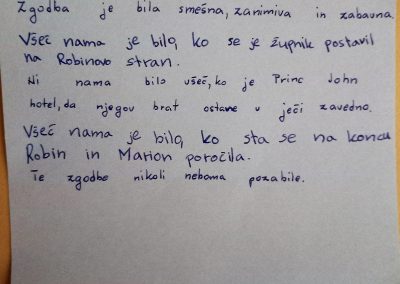 Zgodba je bila smešna, zanimiva in zabavna.
Všeč nama je bilo, ko se je župnik postavil
na Robinovo stran.
Ni nama bilo všeč, ko je Princ John
hotel, da njegov brat ostane v ječi zavedno.
Všeč nama je bilo, ko sta se na koncu
Robin in Marion poročila.
Te zgodbe nikoli neboma pozabile.